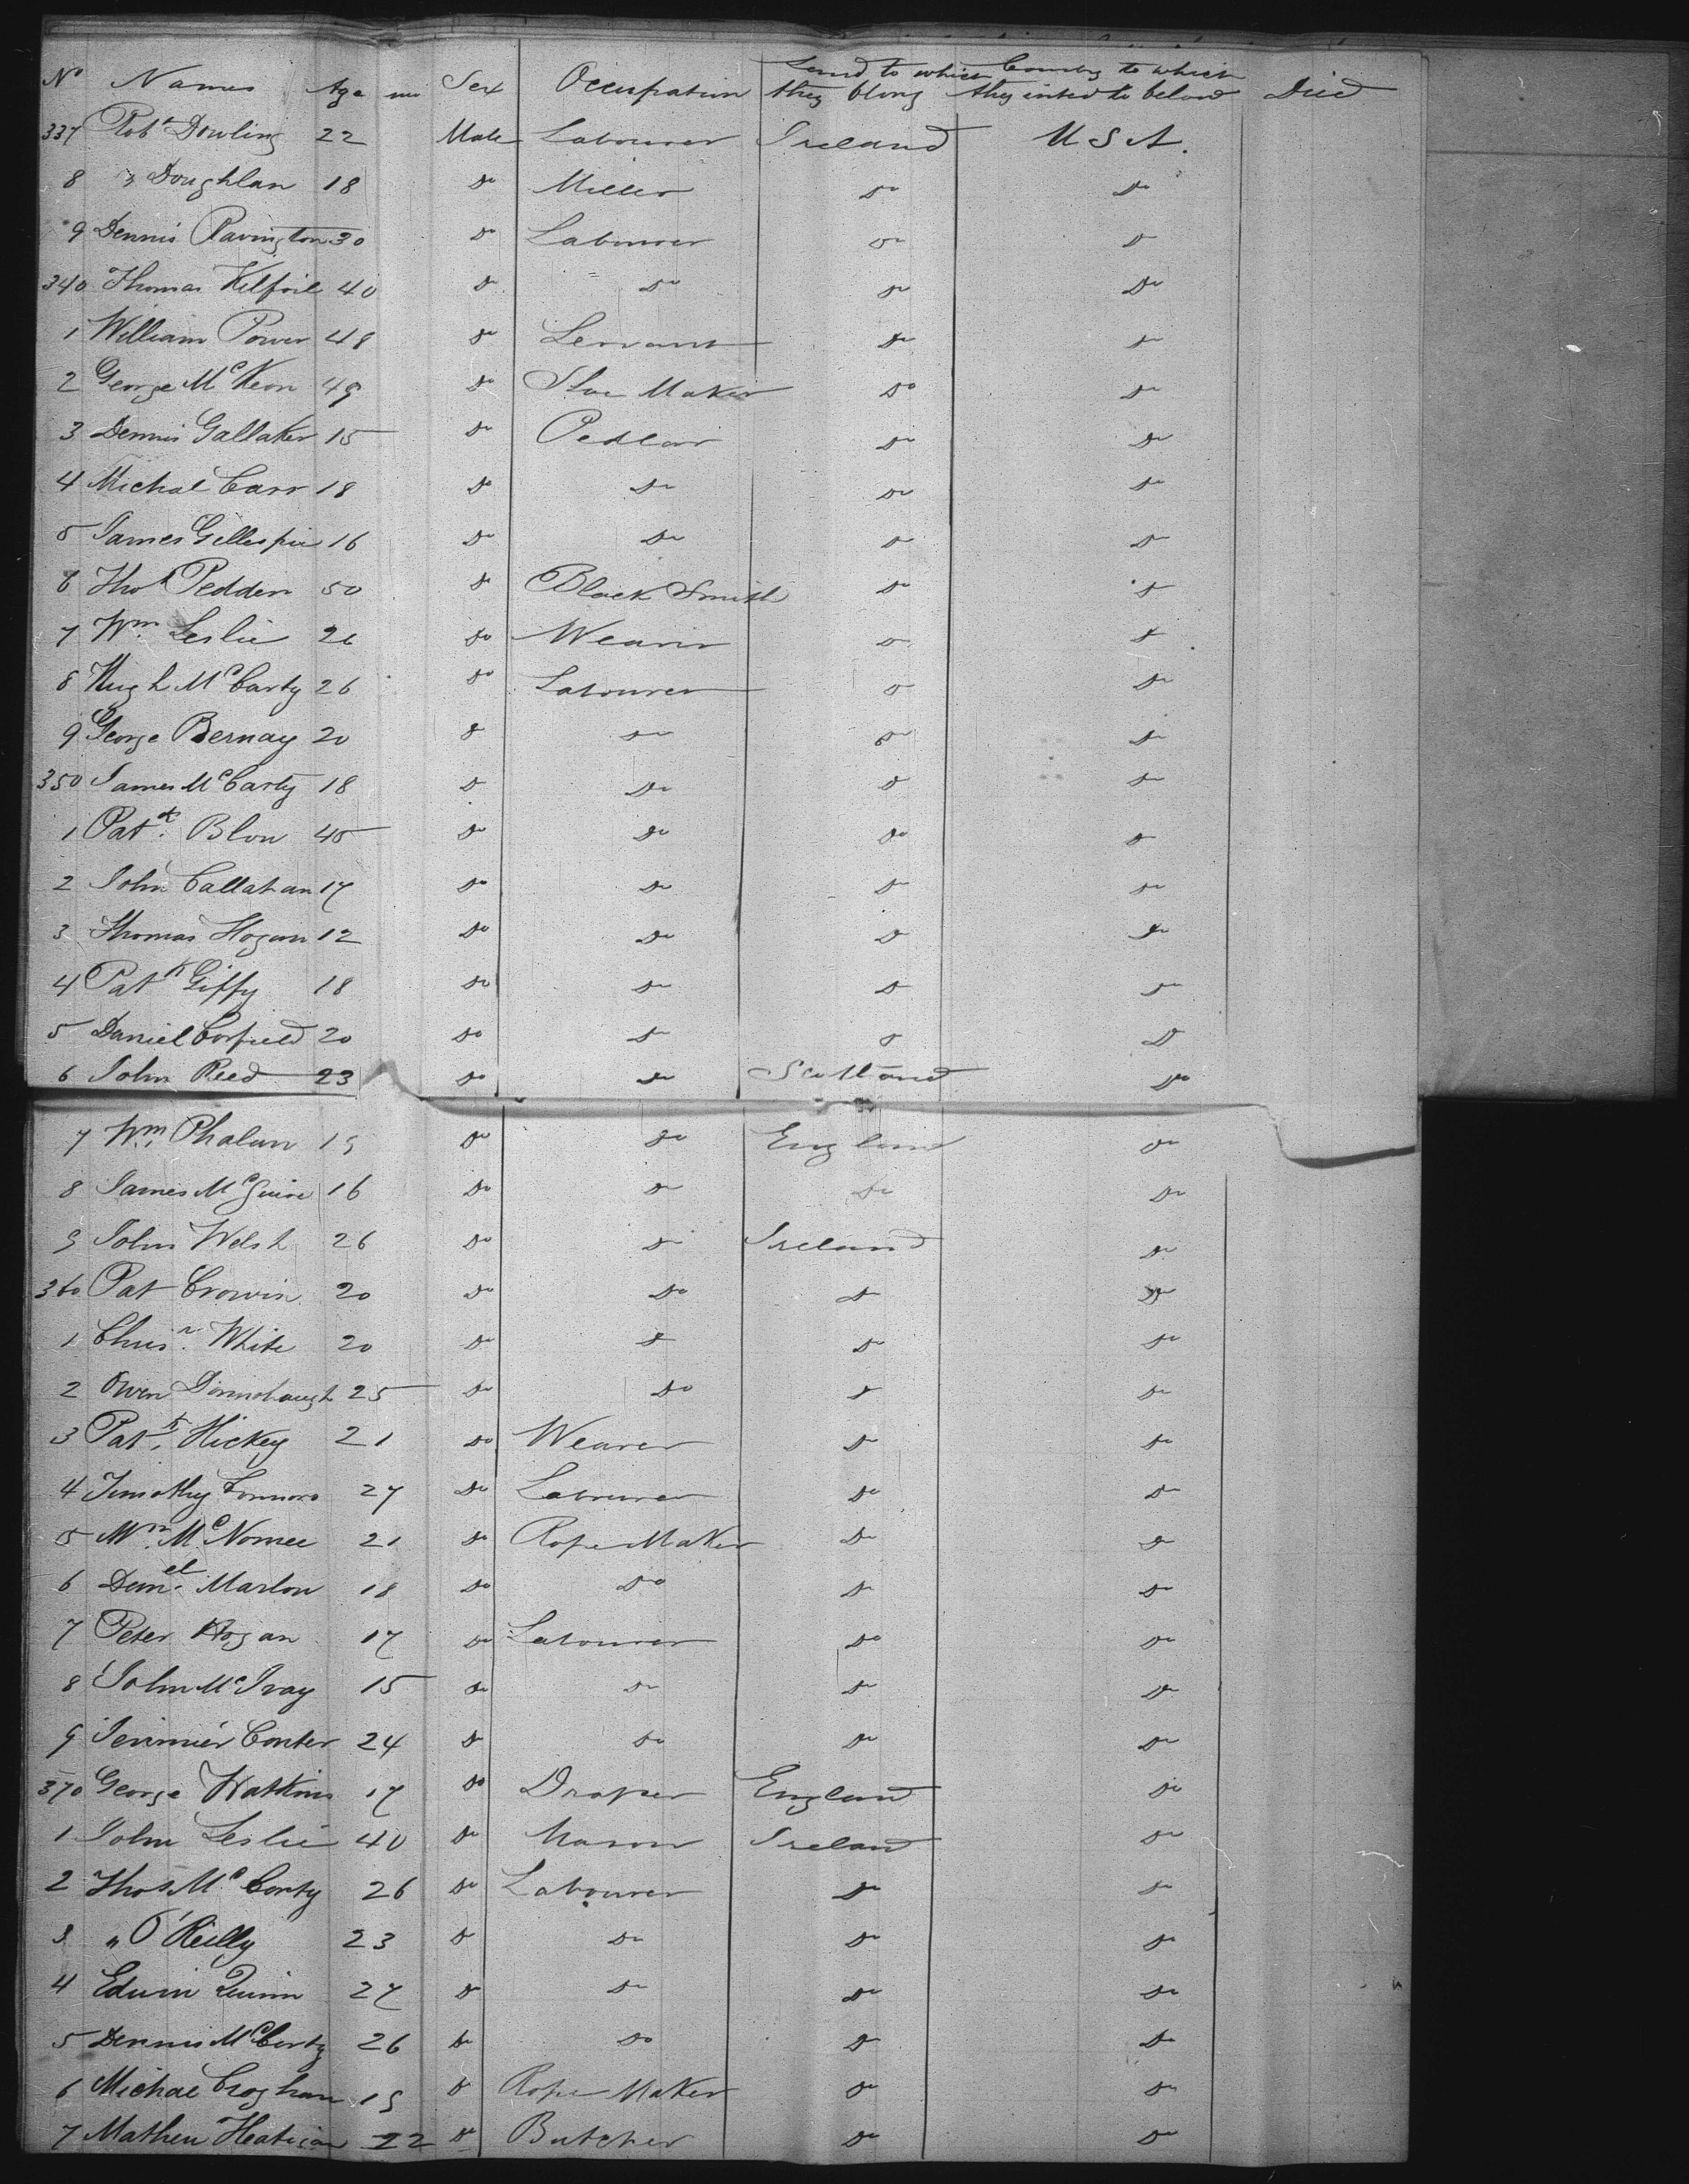 No Names Age Sex Occupation Land to which they blong Country to which they intend to belond Died
337 Robt Dowling 22 Male Labourer Ireland U S A.
8 " Doughlan 18 Do Miller Do Do
9 Dennis Pavington 30 Do Labourer Do Do
340 Thomas Kilfoil 40 Do Do Do Do
1 William Power 48 Do Servant Do Do
2 George McKeon 49 Do Shoe Maker Do Do
3 Dennis Gallaker 15 Do Pedlar Do Do
4 Michal Carr 18 Do Do Do Do
5 James Gillespie 16 Do Do Do Do
6 Thos Pedden 50 Do Black Smith Do Do
7 Wm. Leslie 26 Do Weaver Do Do
8 Hugh McCarty 26 Do Labourer Do Do
9 George Bernay 20 Do Do Do Do
350 James McCarty 18 Do Do Do Do
1 Patk. Blow 45 Do Do Do Do
2 John Callahan 17 Do Do Do Do
3 Thomas Hogan 12 Do Do Do Do
4 Patk Giffy 18 Do Do Do Do
5 Daniel Corfield 20 Do Do Do Do
6 John Reed 23 Do Do Scotland Do
7 Wm. Phalan 19 Do Do England Do
8 James McGuire 16 Do Do Do Do
9 John Welsh 26 Do Do Ireland Do
360 Pat Crowin 20 Do Do Do Do
1 Chrisr. White 20 Do Do Do Do
2 Owen Donnohaugh 25 Do Do Do Do
3 Patk. Hickey 21 Do Weaver Do Do
4 Timothy Connors 27 Do Labourer Do Do
5 Wm. McNomee 21 Do Rope Maker Do Do
6 Danel. Marlow 18 Do Do Do Do
7 Peter Hogan 17 Do Labourer Do Do
8 John McIvay 15 Do Do Do Do
9 Jerimier Conter 24 Do Do Do Do
370 George Watkins 17 Do Draper England Do
1 John Leslie 40 Do Mason Ireland Do
2 Thos McCarty 26 Do Labourer Do Do
3 " O'Reilly 23 Do Do Do Do
4 Edwin Quinn 27 Do Do Do Do
5 Dennis McCarty 26 Do Do Do Do
6 Michae Croghan 19 Do Rope Maker Do Do
7 Mathew Heatigan 22 Do Butcher Do Do